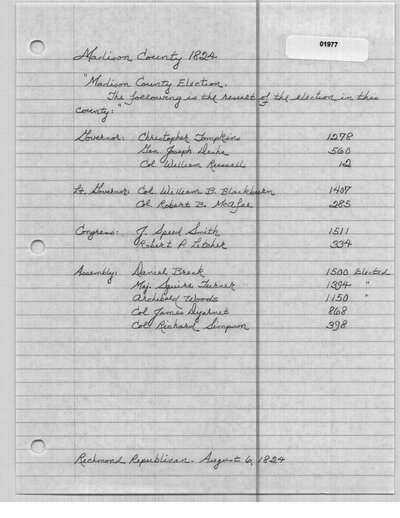 01977
Madison County 1824
"Madison County Election.
The following is the result of the election in this
county:"
Governor: Christopher Tompkins 1278
Gen Joseph Desha 560
Col. William Russell 12
Lt. Governor: Col. William B. Blackburn 1407
Col. Robert B. McAfee 285
Congress: J. Speed Smith 1511
Robert P. Letcher 334
Assembly: Daniel Breck 1500 Elected
Maj. Squire Turner 1394 "
Archibald Woods 1150 "
Col. James Dejarnet 868
Col. Richard Simpson 398
Richmond Republican. August 6, 1824